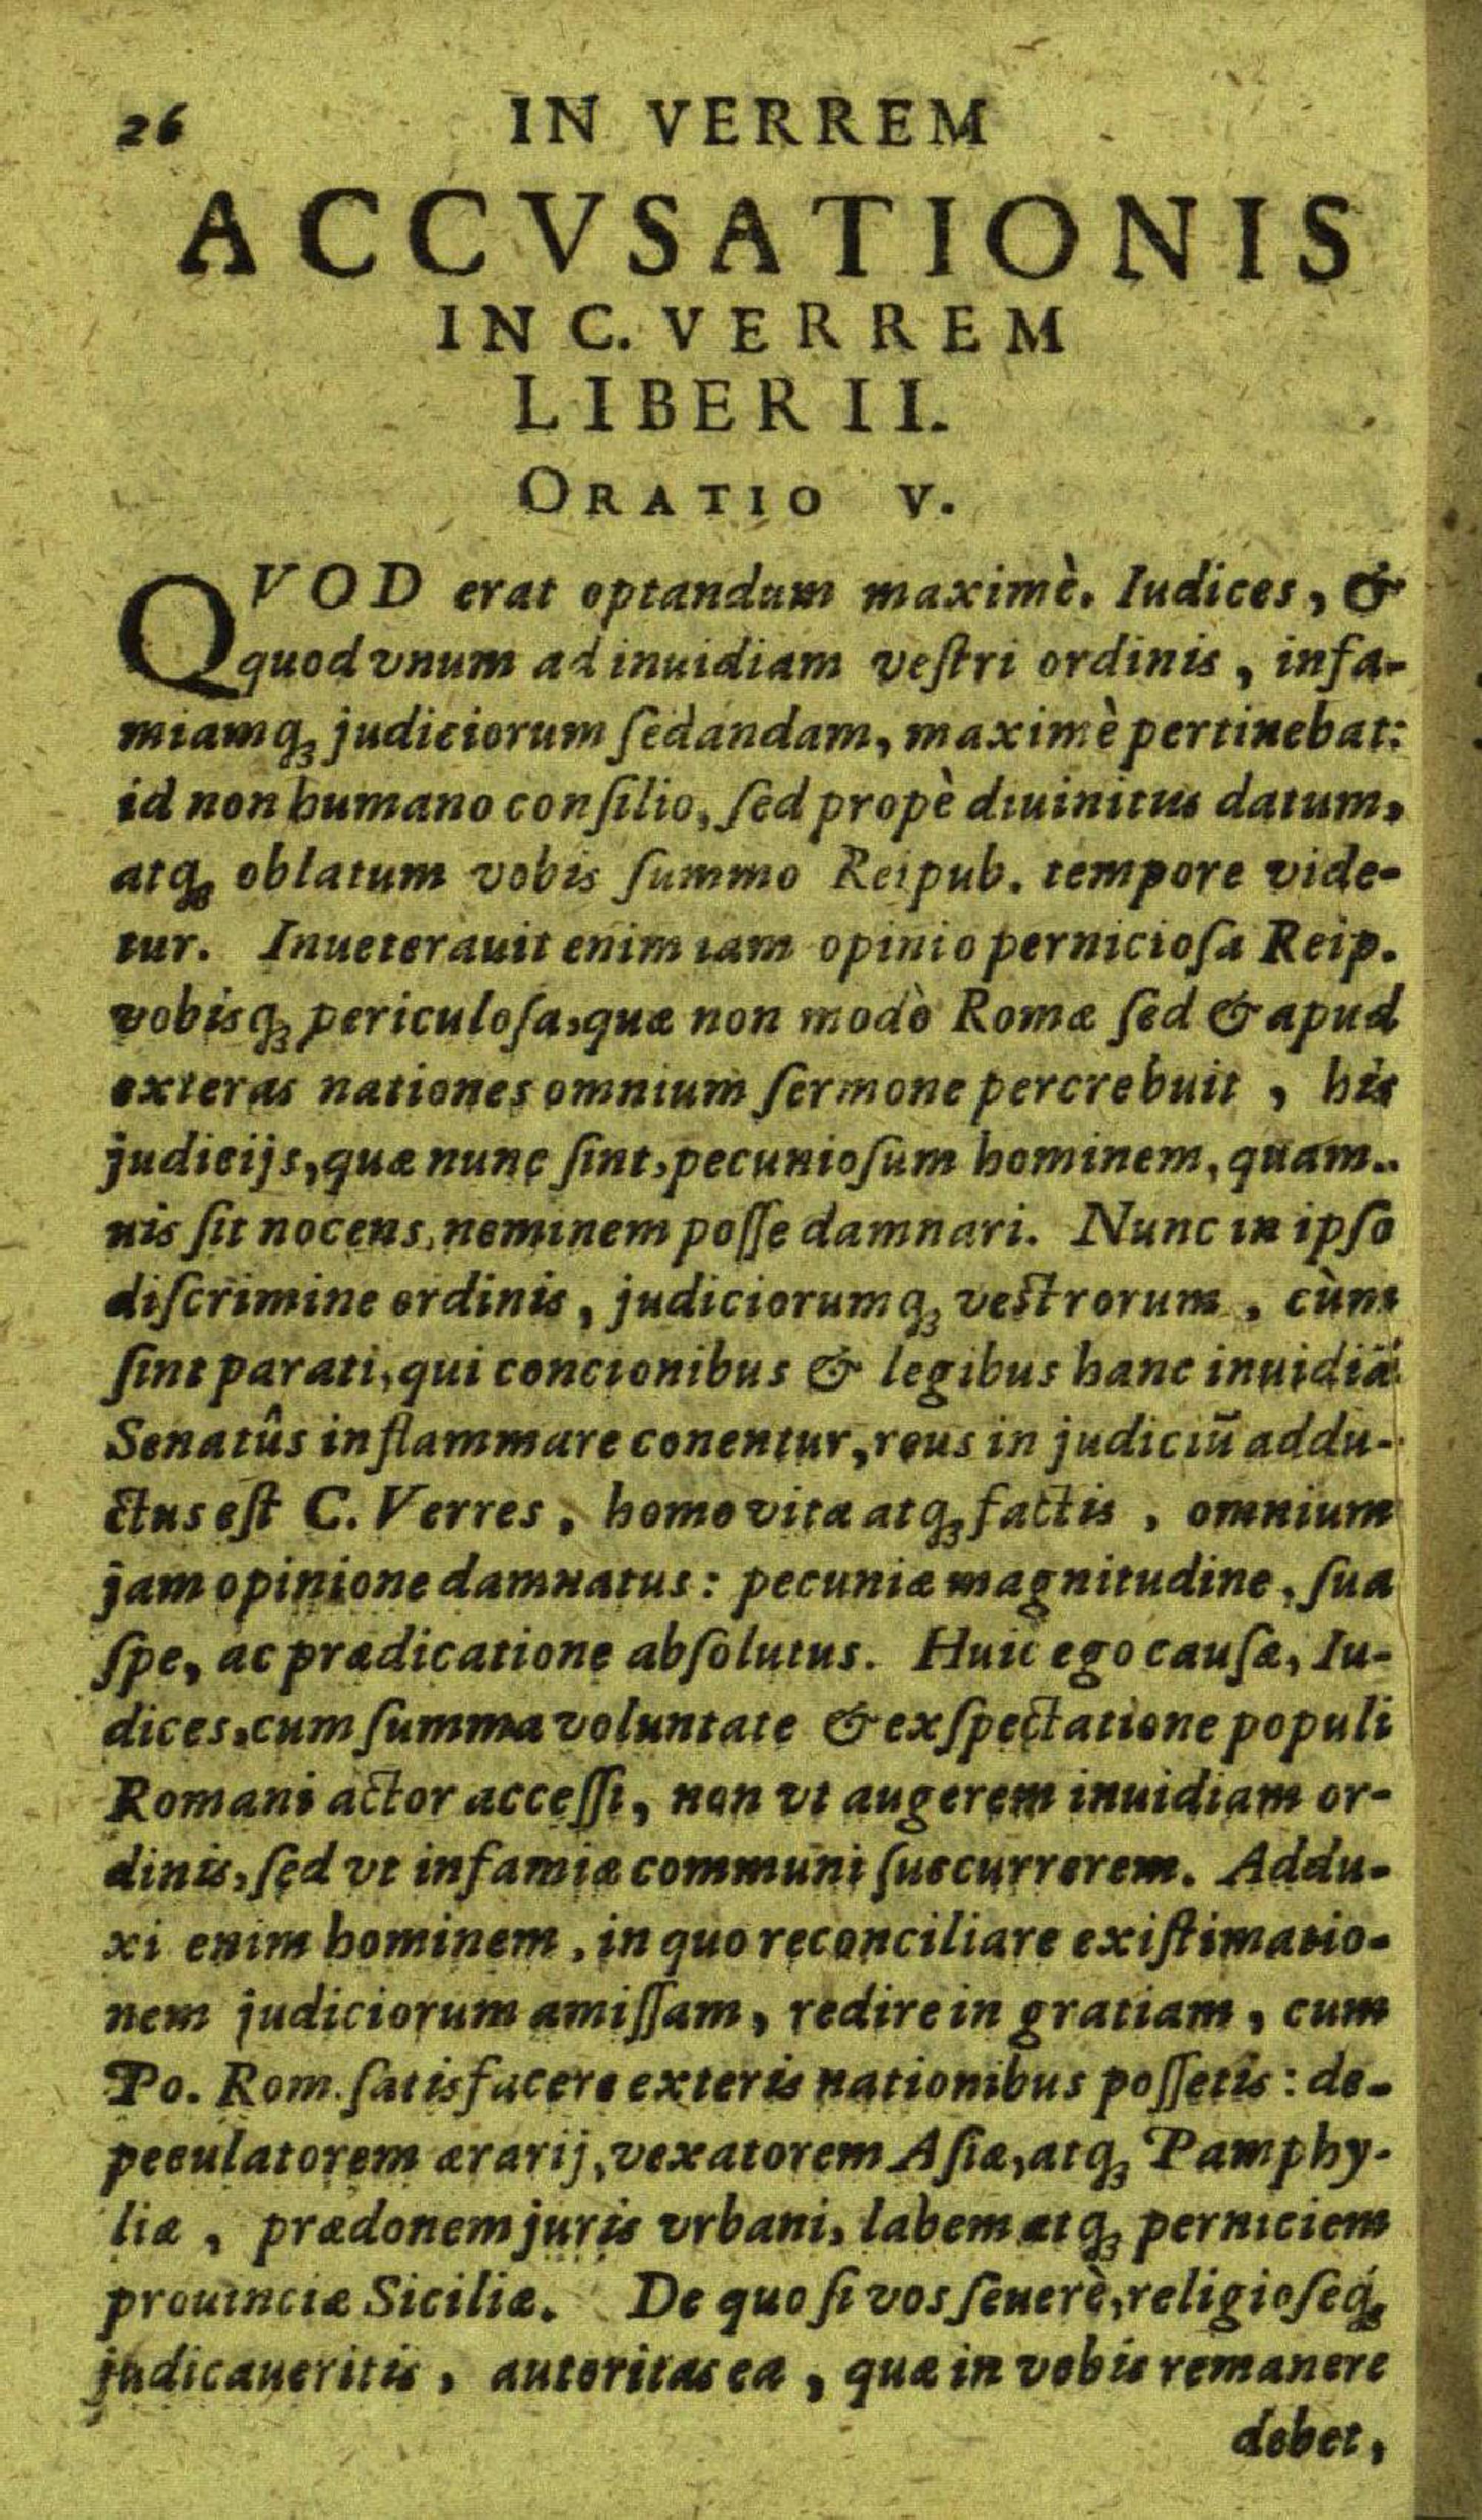 26 IN VERREM
ACCVSATIONIS
IN C. VERREM
LIBER II.
ORATIO V.
QVOD erat optandum maximè. Iudices, &
quod vnum ad inuidiam veſtri ordinis, infa-
miamq́ꝫ judiciorum ſedandam, maximè pertinebat:
id non humano conſilio, ſed propè diuinitus datum,
atqꝫ oblatum vobis ſummo Reipub. tempore vide-
tur. Inueterauit enim iam opinio pernicioſa Reip.
vobisqꝫ periculoſa, quæ non modò Romæ ſed & apud
exteras nationes omnium ſermone percrebuit, his
judicijs, quæ nunc ſint, pecunioſum hominem, quam-
uis ſit nocens, neminem poſſe damnari. Nunc in ipſo
diſcrimine ordinis, judiciorumqꝫ veſtrorum, cùm
ſint parati, qui concionibus & legibus hanc inuidiā
Senatûs inflammare conentur, reus in judiciū addu-
ctus eſt C. Verres, homo vita atqꝫ factis, omnium
jam opinione damnatus: pecuniæ magnitudine, ſua
ſpe, ac prædicatione abſolutus. Huic ego cauſæ, Iu-
dices, cum ſumma voluntate & exſpectatione populi
Romani actor acceſſi, non vt augerem inuidiam or-
dinis, ſed vt infamiæ communi ſuccurrerem. Addu-
xi enim hominem, in quo reconciliare exiſtimatio-
nem judiciorum amiſſam, redire in gratiam, cum
Po. Rom. ſatisfacere exteris nationibus poſſetis: de-
peculatorem ærarij, vexatorem Aſiæ, atqꝫ Pamphy-
liæ, prædonem juris vrbani, labem atqꝫ perniciem
prouinciæ Siciliæ. De quo ſi vos ſeuerè, religioſeqꝫ
judicaueritis, autoritas ea, quæ in vobis remanere
debet,